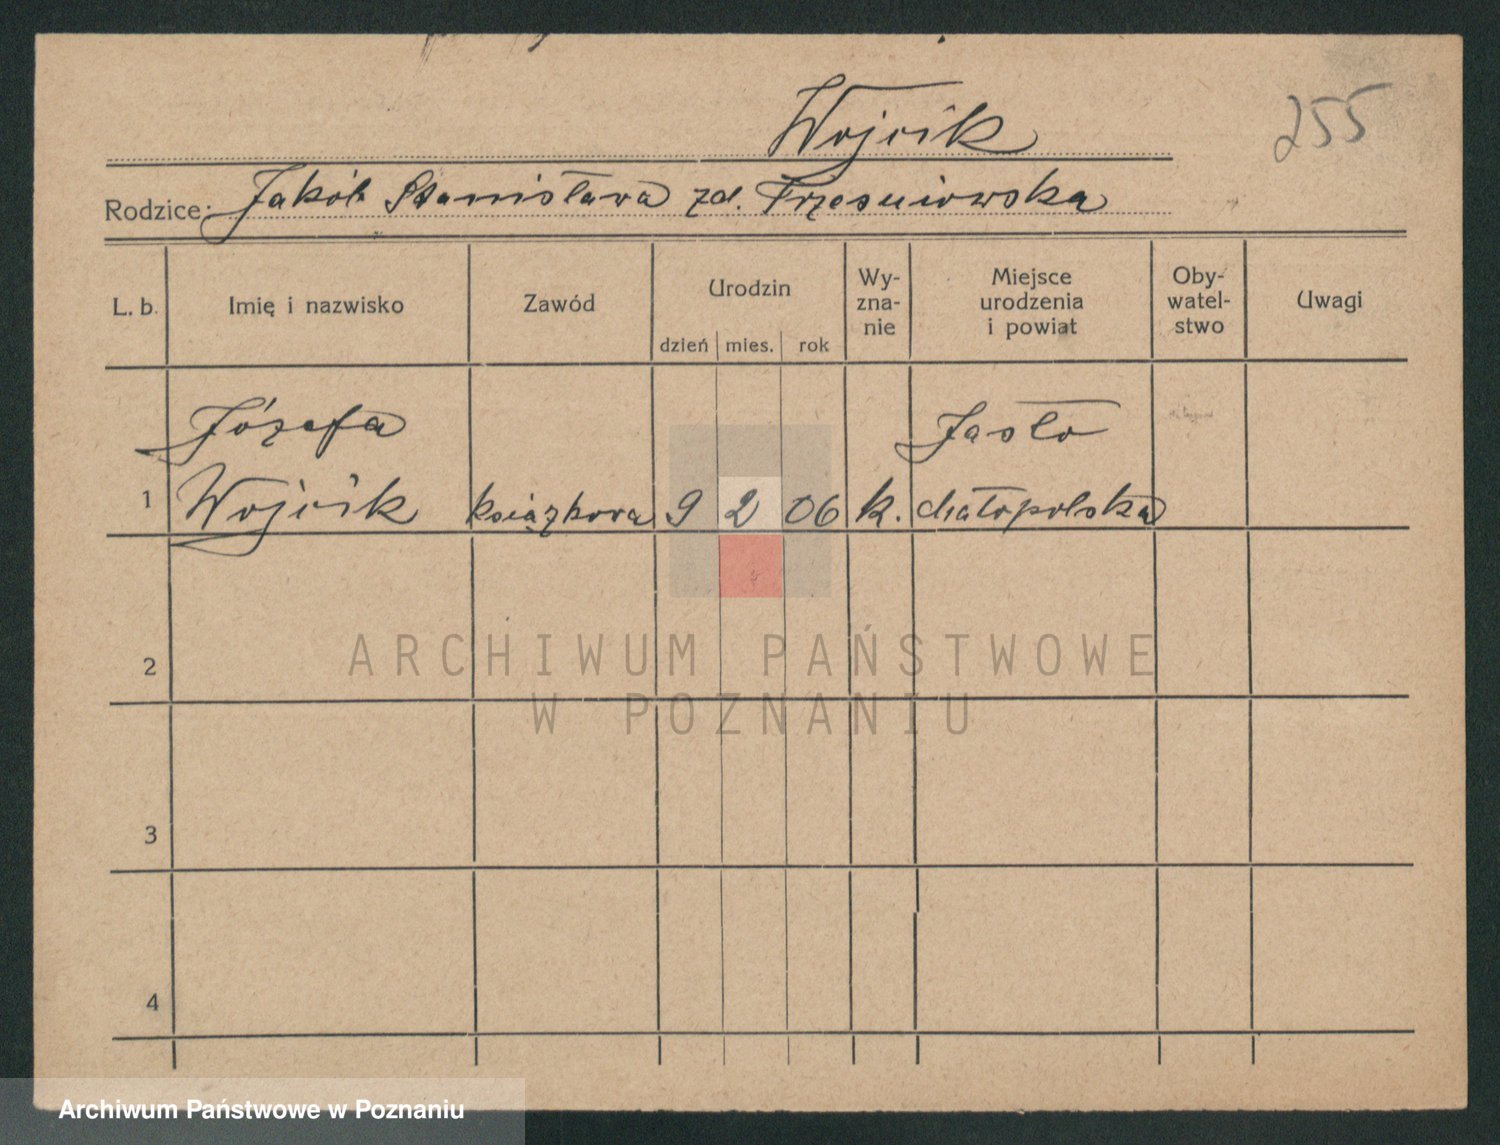 Wojcik
255
Rodzice: Jakób Stanisława zd. Trzesniowska
L. b. Imię i nazwisko Zawód Urodzin dzień mies. rok Wy-zna-nie Miejsce urodzenia i powiat Oby-watel-stwo Uwagi
Józefa Jasło
1 Wojcik książkowa 9 2 06 k. Małopolska
2
ARCHIWUM PAŃSTWOWE
W POZNANIU
3
4
Archiwum Państwowe w Poznaniu